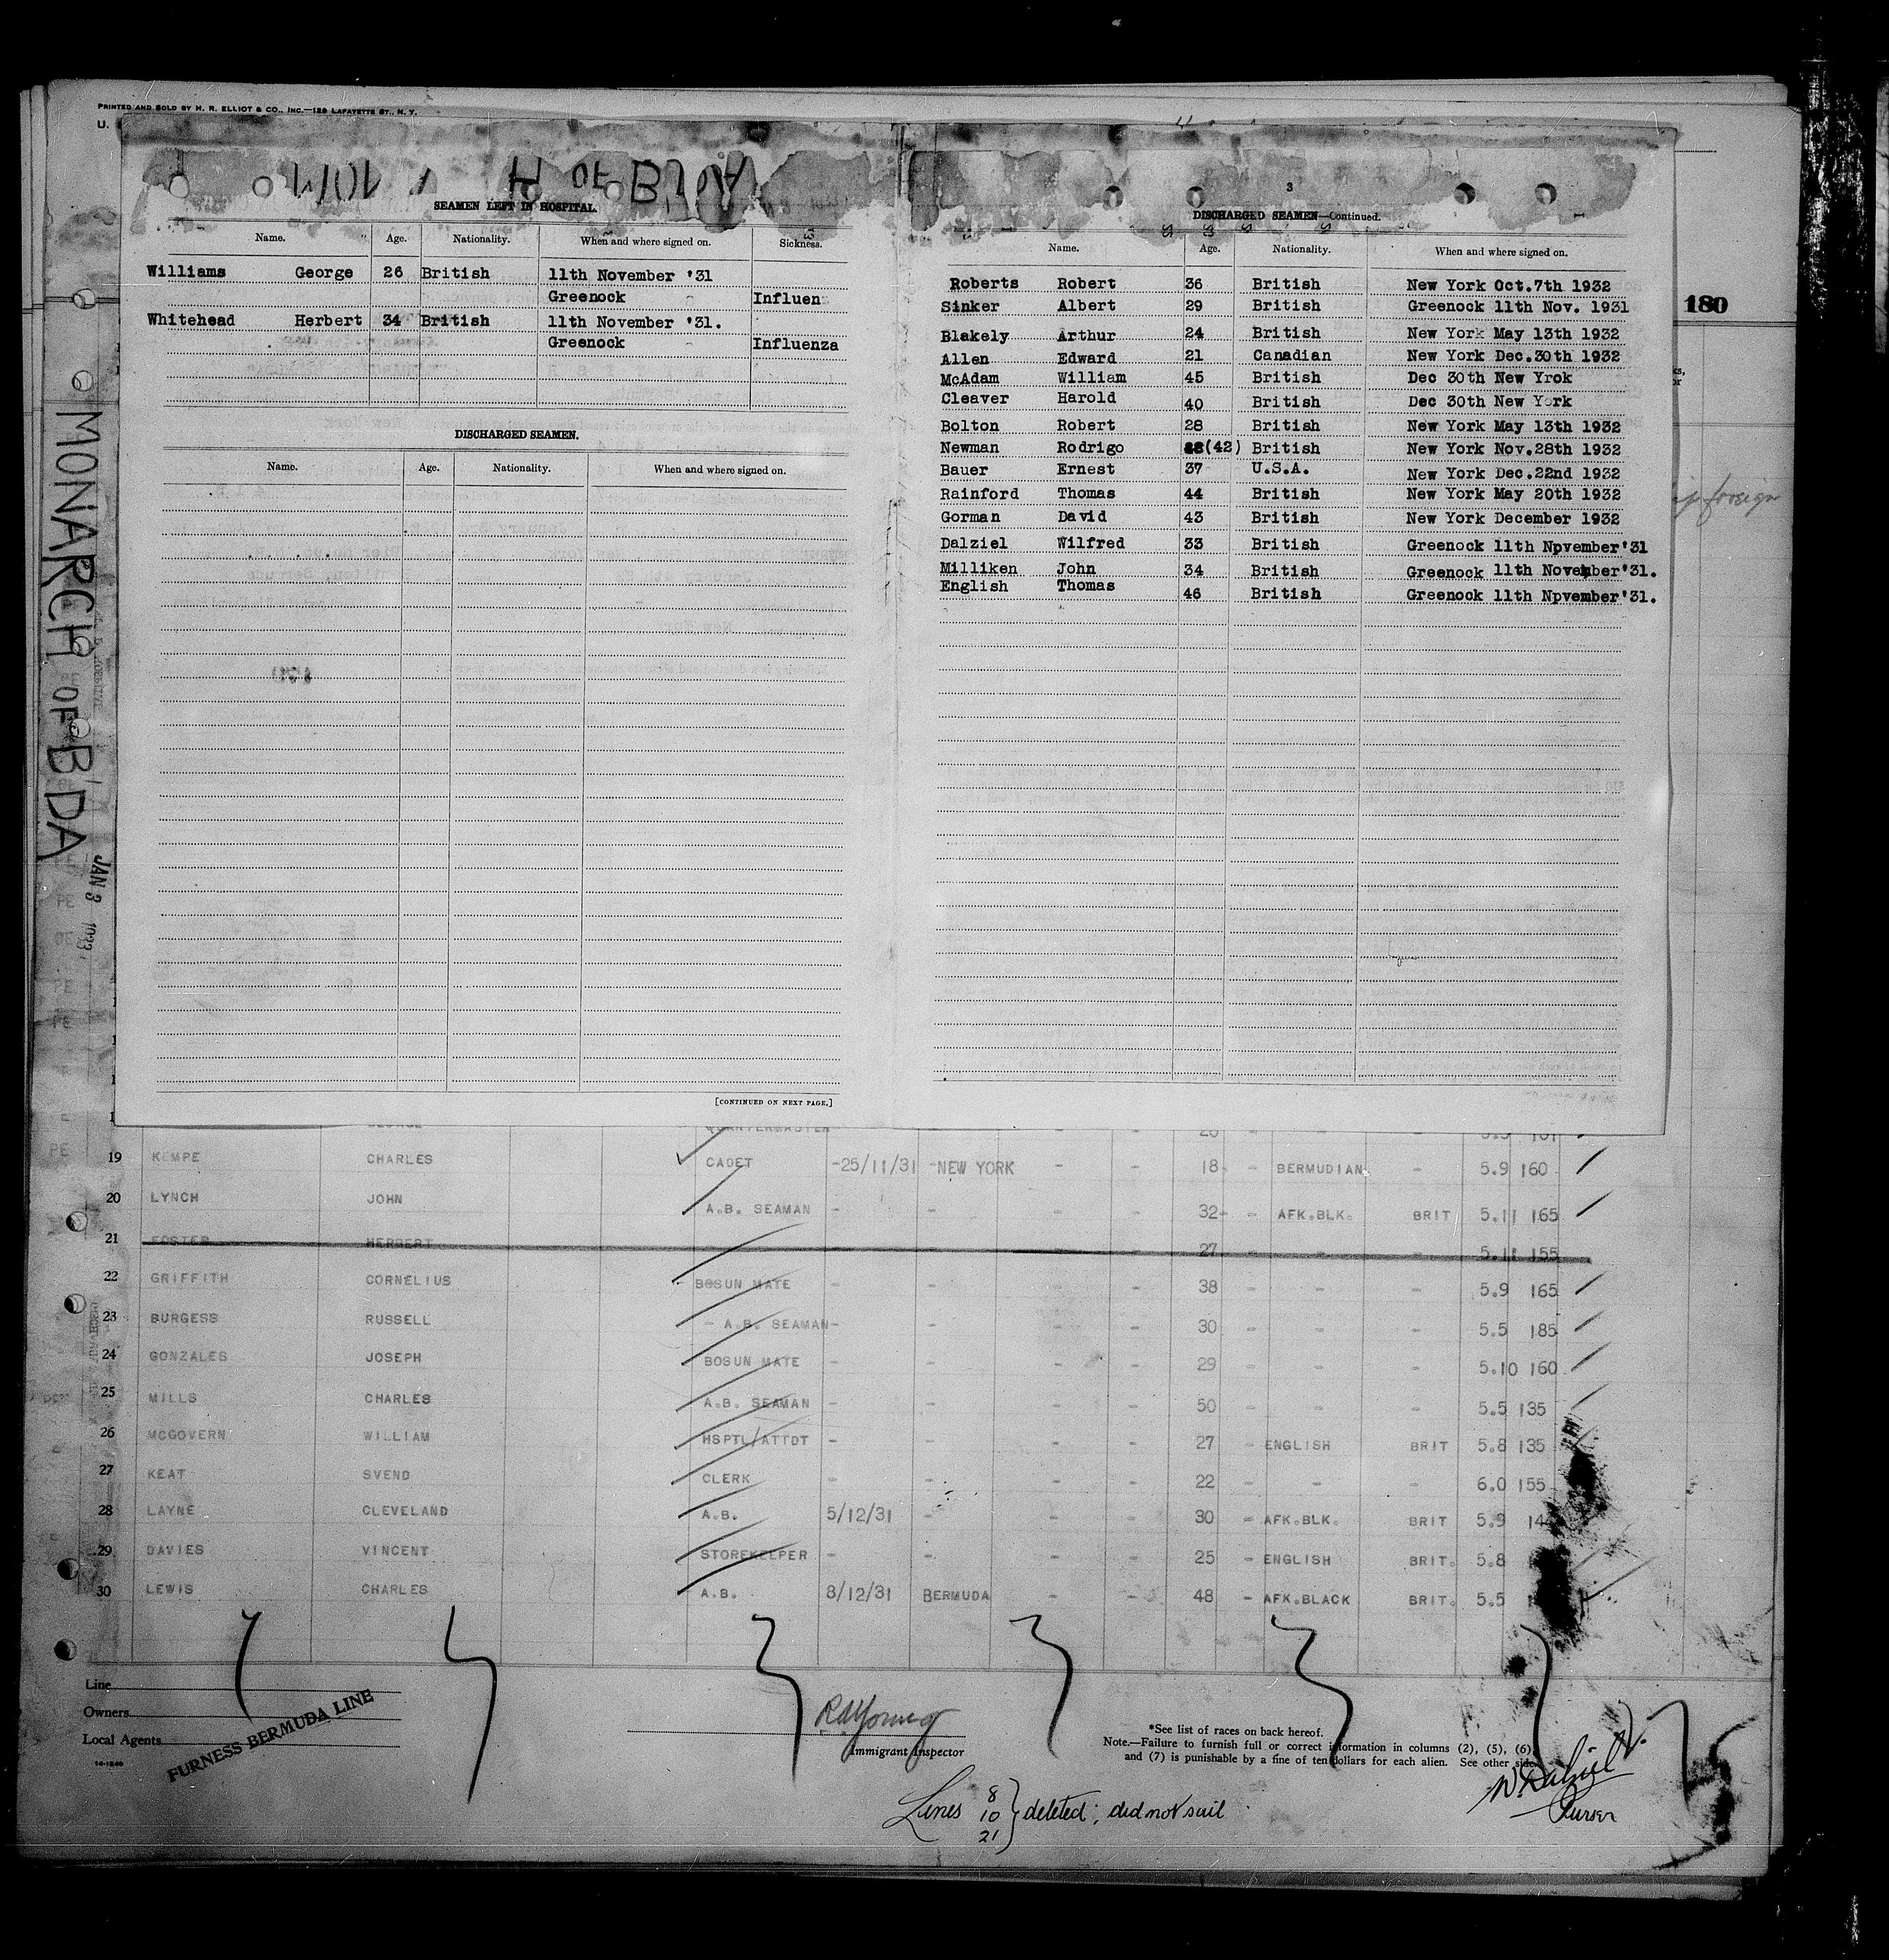 PRINTED AND SOLD BY H. R. ELLIOT & CO., INC.—129 LAFAYETTE ST., N. Y.
U.
SEAMEN LEFT IN HOSPITAL.
Name. Age. Nationality. When and where signed on. Sickness.
Williams George 26 British 11th November '31
Greenock Influen
Whitehead Herbert 34 British 11th November '31.
Greenock Influenza
DISCHARGED SEAMEN.
Name. Age. Nationality. When and where signed on.
[CONTINUED ON NEXT PAGE.]
3
DISCHARGED SEAMEN—Continued.
Name. Age. Nationality. When and where signed on.
Roberts Robert 36 British New York Oct.7th 1932
Sinker Albert 29 British Greenock 11th Nov. 1931
Blakely Arthur 24 British New York May 13th 1932
Allen Edward 21 Canadian New York Dec.30th 1932
McAdam William 45 British Dec 30th New Yrok
Cleaver Harold 40 British Dec 30th New York
Bolton Robert 28 British New York May 13th 1932
Newman Rodrigo (42) British New York Nov.28th 1932
Bauer Ernest 37 U.S.A. New York Dec.22nd 1932
Rainford Thomas 44 British New York May 20th 1932
Gorman David 43 British New York December 1932
Dalziel Wilfred 33 British Greenock 11th Npvember'31
Milliken John 34 British Greenock 11th November'31.
English Thomas 46 British Greenock 11th Npvember'31.
180
foreign
MONARCH OF B'DA
JAN 3 1933
QUARTERMASTER
19 KEMPE CHARLES CADET -25/11/31 -NEW YORK - - 18- - BERMUDIAN - 5.9 160
20 LYNCH JOHN A.B. SEAMAN - - - - 32- - AFK.BLK. BRIT 5.11 165
21 FOSTER HERBERT - - - 27 - - - 5.11 155
22 GRIFFITH CORNELIUS BOSUN MATE - - - - 38 - - - 5.9 165
23 BURGESS RUSSELL - A.B. SEAMAN- - - - 30 - - - 5.5 185
24 GONZALES JOSEPH BOSUN MATE - - - - 29 - - - 5.10 160
25 MILLS CHARLES A.B. SEAMAN - - - - 50 - - - 5.5 135
26 MCGOVERN WILLIAM HSPTL/ATTDT - - - - 27 - ENGLISH BRIT 5.8 135
27 KEAT SVEND CLERK - - - - 22 - - - 6.0 155
28 LAYNE CLEVELAND A.B. 5/12/31 - - - 30 - AFK.BLK. BRIT 5.9
29 DAVIES VINCENT STOREKEEPER - - - - 25 - ENGLISH BRIT. 5.8
30 LEWIS CHARLES A.B. 8/12/31 BERMUDA - - 48 - AFK.BLACK BRIT. 5.5
Line
Owners
Local Agents
FURNESS BERMUDA LINE
R d Young
Immigrant Inspector
*See list of races on back hereof.
Note.—Failure to furnish full or correct information in columns (2), (5), (6)
and (7) is punishable by a fine of ten dollars for each alien. See other side.
Lines 8
10 } deleted; did not sail
21
W. Dalziel
Purser